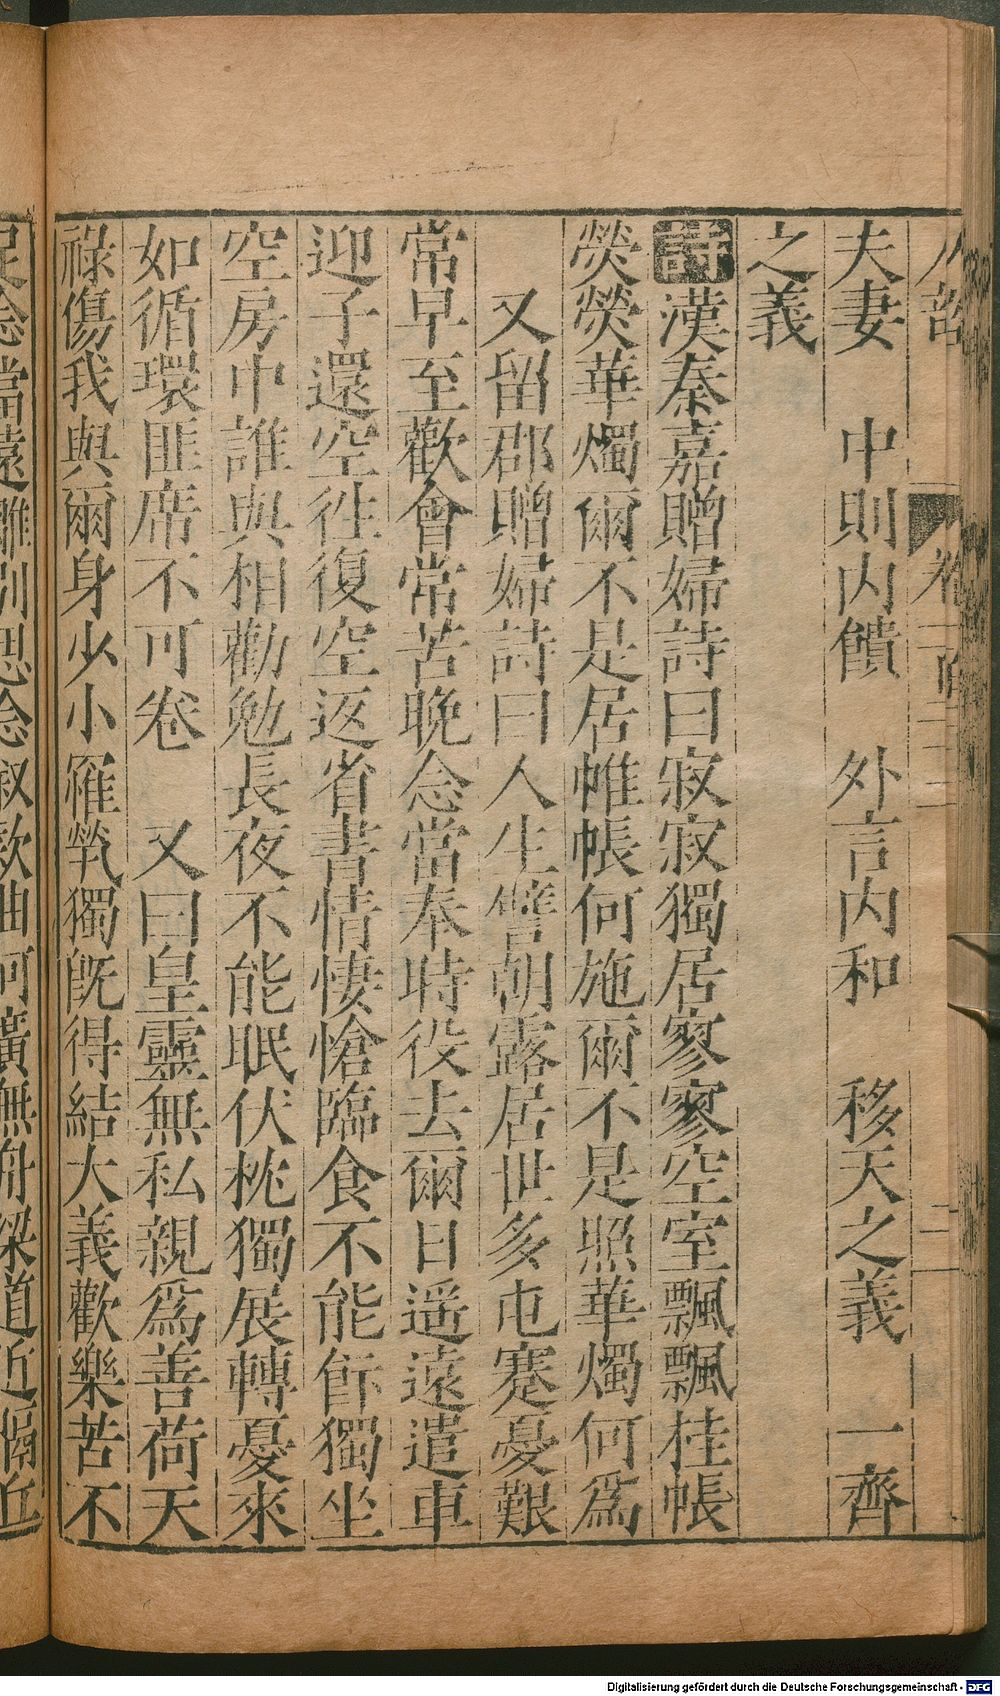 夫妻　中則內饋　外言內和　移天之義　一齊
之義
詩漢秦嘉贈婦詩曰寂寂獨居寥寥空室飄飄桂帳
熒熒華燭爾不是居帷帳何施爾不是照華燭何爲
又留郡贈婦詩曰人生譬朝露居世多屯蹇憂艱
常早至歡會常苦晚念當奉時役去爾日遥遠遣車
迎子還空往復空返省書情悽愴臨食不能飰獨坐
空房中誰與相勸勉長夜不能眠伏枕獨展轉憂來
如循環匪席不可卷　又曰皇靈無私親爲善荷天
祿傷我與爾身少小罹煢獨旣得結大義歡樂苦不
足念當遠離別思念叙欵曲河廣無舟梁道近隔丘
Digitalisierung gefördert durch die Deutsche Forschungsgemeinschaft - DFG